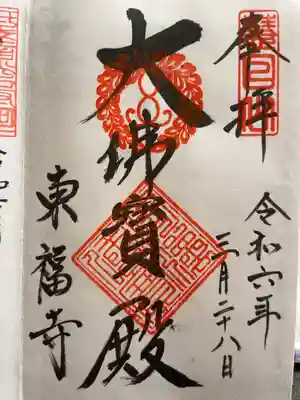 奉拝
令和六年
三月二十八日
大佛寶殿
東福寺